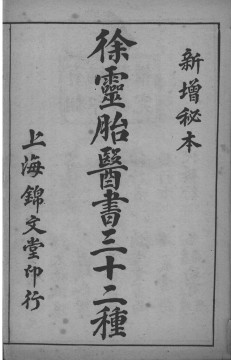 新增秘本
徐靈胎醫書三十二種
上海錦文堂印行